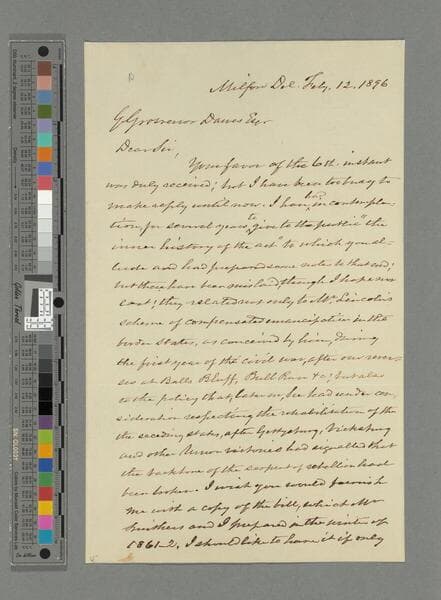 Milford Del. Feby. 12. 1896
G Grosvenor Dawes Esqr
Dear Sir,
Your favor of the 6th instant
was duly received; but I have been too busy to
make reply until now. I have had in contempla-
tion, for several years to give to the public "the
inner history of the act" to which you al-
lude and had prepared some notes to that end;
but these have been mislaid, though I hope not
lost; they related not only to Mr Lincoln's
scheme of compensated emancipation in the
border States, as conceived by him, during
the first year of the civil war, after our rever-
ses at Balls Bluff, Bull Run &c; but also
to the policy that, later on, he had under con-
sideration respecting the rehabilitation of the
the seceding states, after Gettysburg, Vicksburg
and other Union victories had signalled that
the backbone of the serpent of rebellion had
been broken. I wish you would furnish
me with a copy of the bill, which Mr
and I prepared in the winter of
1861-2. I should like to have it if only